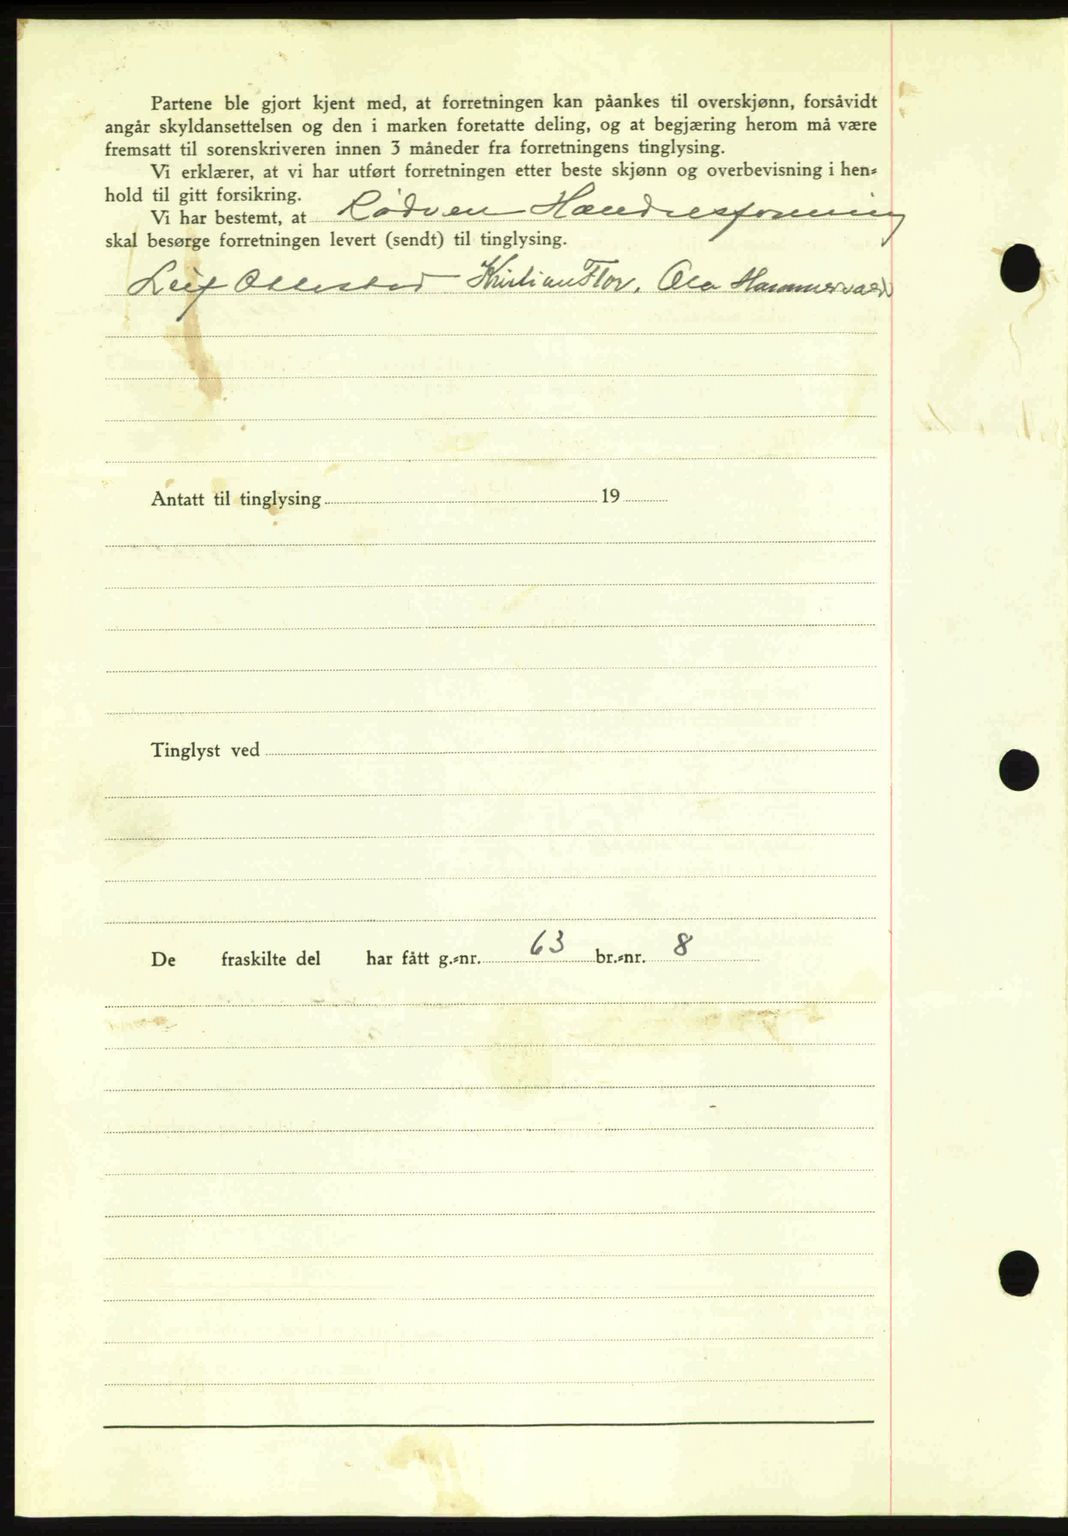 Partene ble gjort kjent med, at forretningen kan påankes til overskjønn, forsåvidt
angår skyldansettelsen og den i marken foretatte deling, og at begjæring herom må være
fremsatt til sorenskriveren innen 3 måneder fra forretningens tinglysing.
Vi erklærer, at vi har utført forretningen etter beste skjønn og overbevisning i hen-
hold til gitt forsikring.
Vi har bestemt, at Rødven Handelsforening
skal besørge forretningen levert (sendt) til tinglysing.
Leif Kristian Flor, Ola Hammervold
Antatt til tinglysing 19
Tinglyst ved
De fraskilte del har fått g.-nr. 63 br.-nr. 8